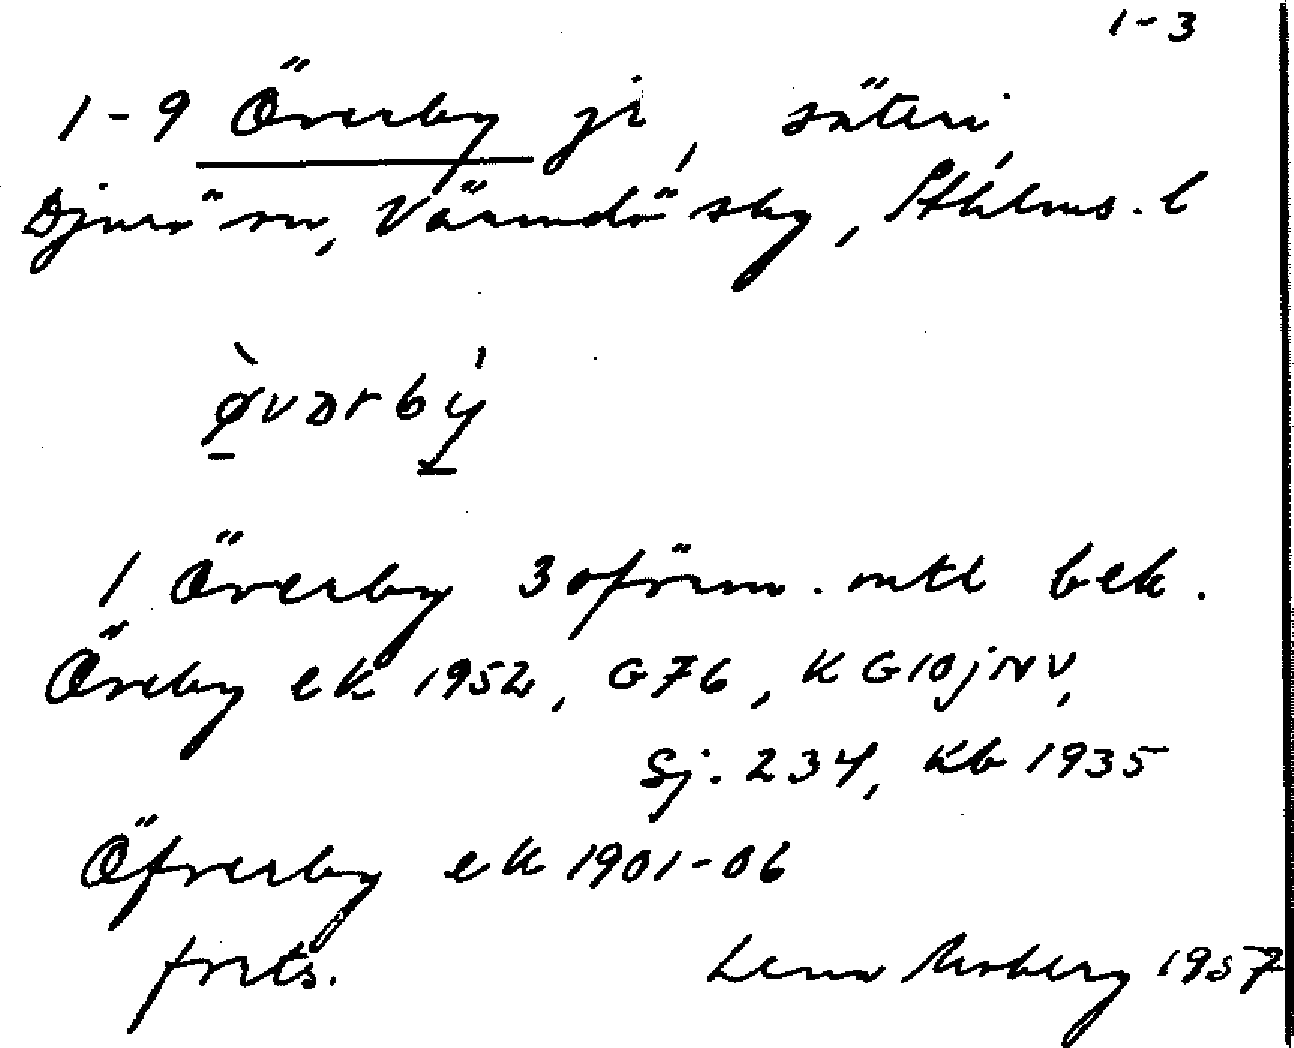 1-3
1-9 Överby jr, säteri,
Djurö sn, Värmdö skg, Sthlms. l
ø̀vərbý
1 Överby 3 oförm. mtl bek.
Öveby ek 1952, G76, K G10jNV,
Sj. 234, Kb 1935
Öfverby ek 1901-06
forts. Lena Moberg 1957